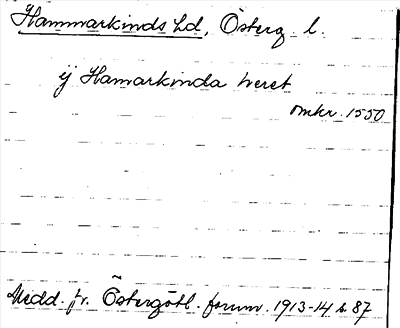 Hammarkinds hd, Österg. l.
ij Hamarkinda heret
omkr. 1550
Medd. fr. Östergötl. fornm. 1913-14 s. 87